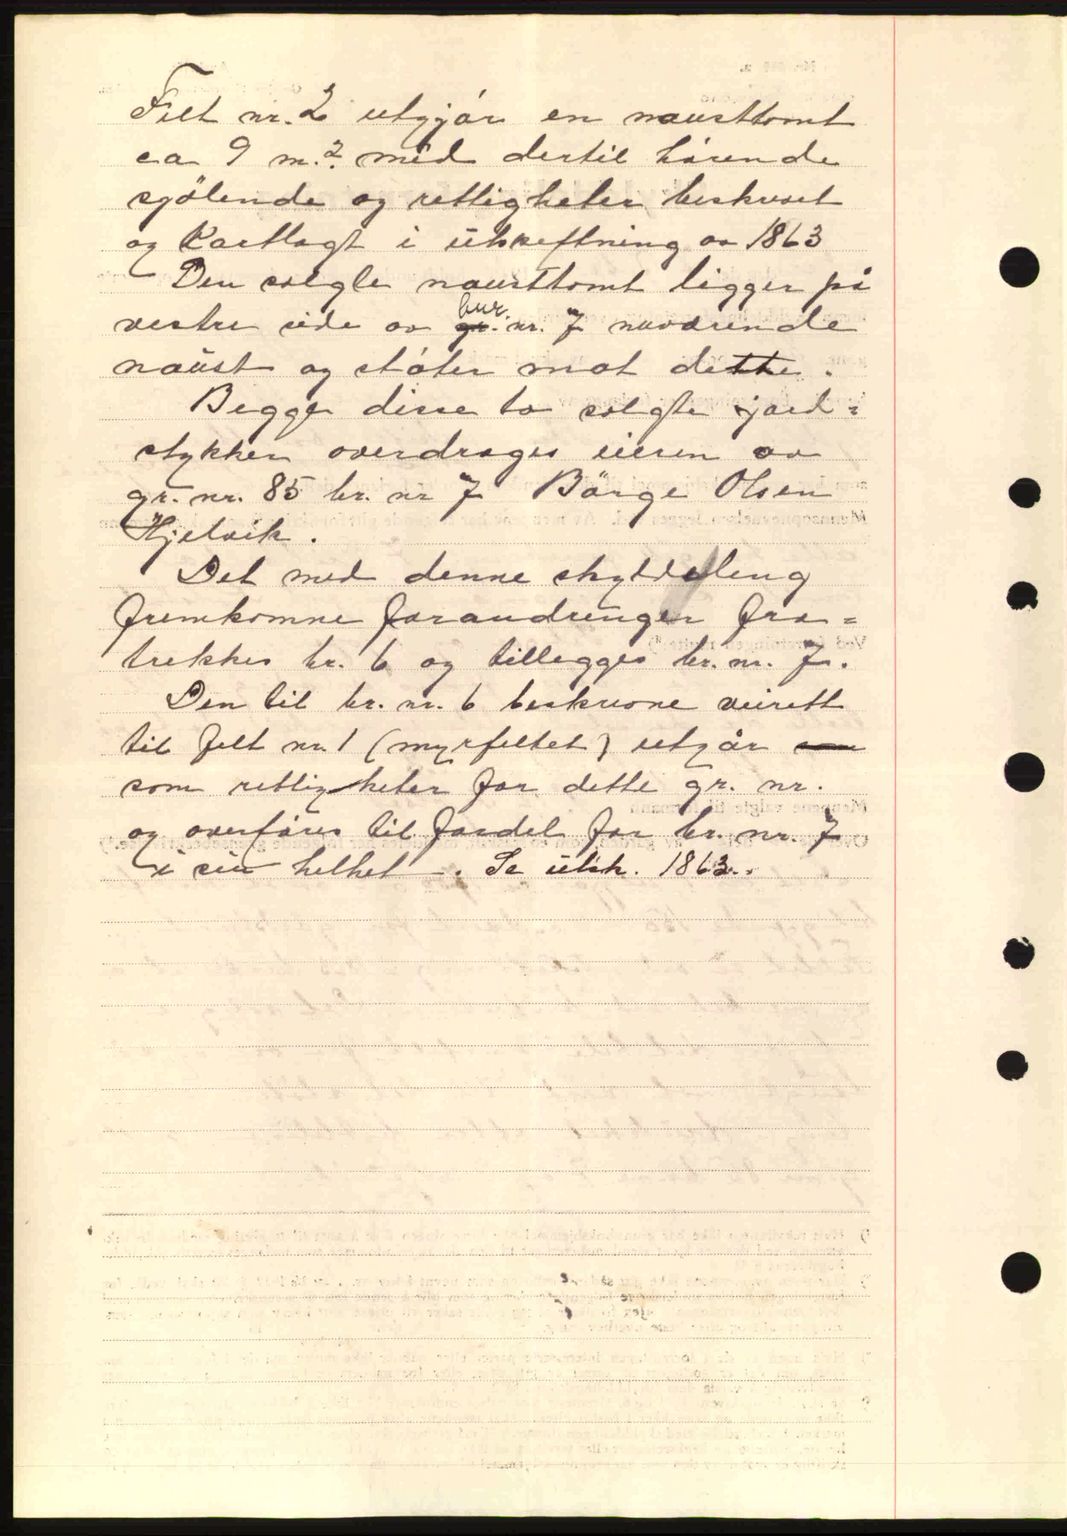 Felt nr. 2 utgjör en nausttomt
ca 9 m.² med dertil hörende
sjölende og rettigheter beskrevet
og Kartlagt i utskiftning av 1863
Den solgte nausttomt ligger på
vestre side av bur. nr. 7 nuværende
naust og stöter mot dette.
Begge disse to solgte jord=
stykker overdrages eieren av
gr. nr. 85 br. nr 7 Börge Olsen
Hjelvik.
Det med denne skylddeling
fremkomne forandringer fra=
trekkes br. 6 og tillegges br. nr. 7.
Den til br. nr. 6 beskrevne veirett
til felt nr. 1 (myrfeltet) utgår
som rettigheter for dette gr. nr.
og overföres til fordel for br. nr. 7
i sin helhet. Se utsk. 1863.